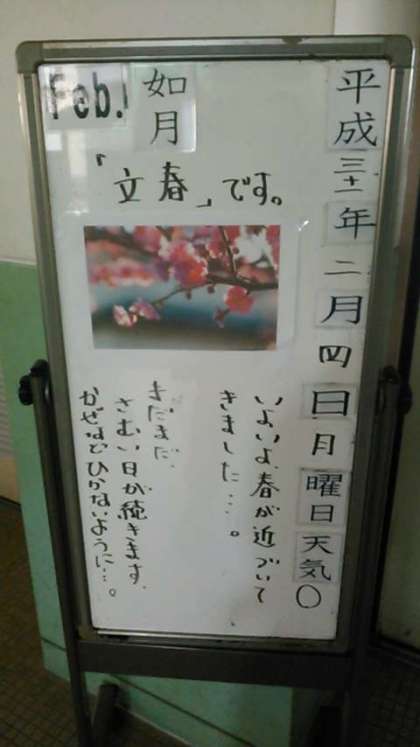 平成三十一年二月四日月曜日天気○
如月
Feb.
「立春」です。
いよいよ春が近づいて
きました…。
まだまだ、
さむい日が続きます、
かぜなどひかないように…。